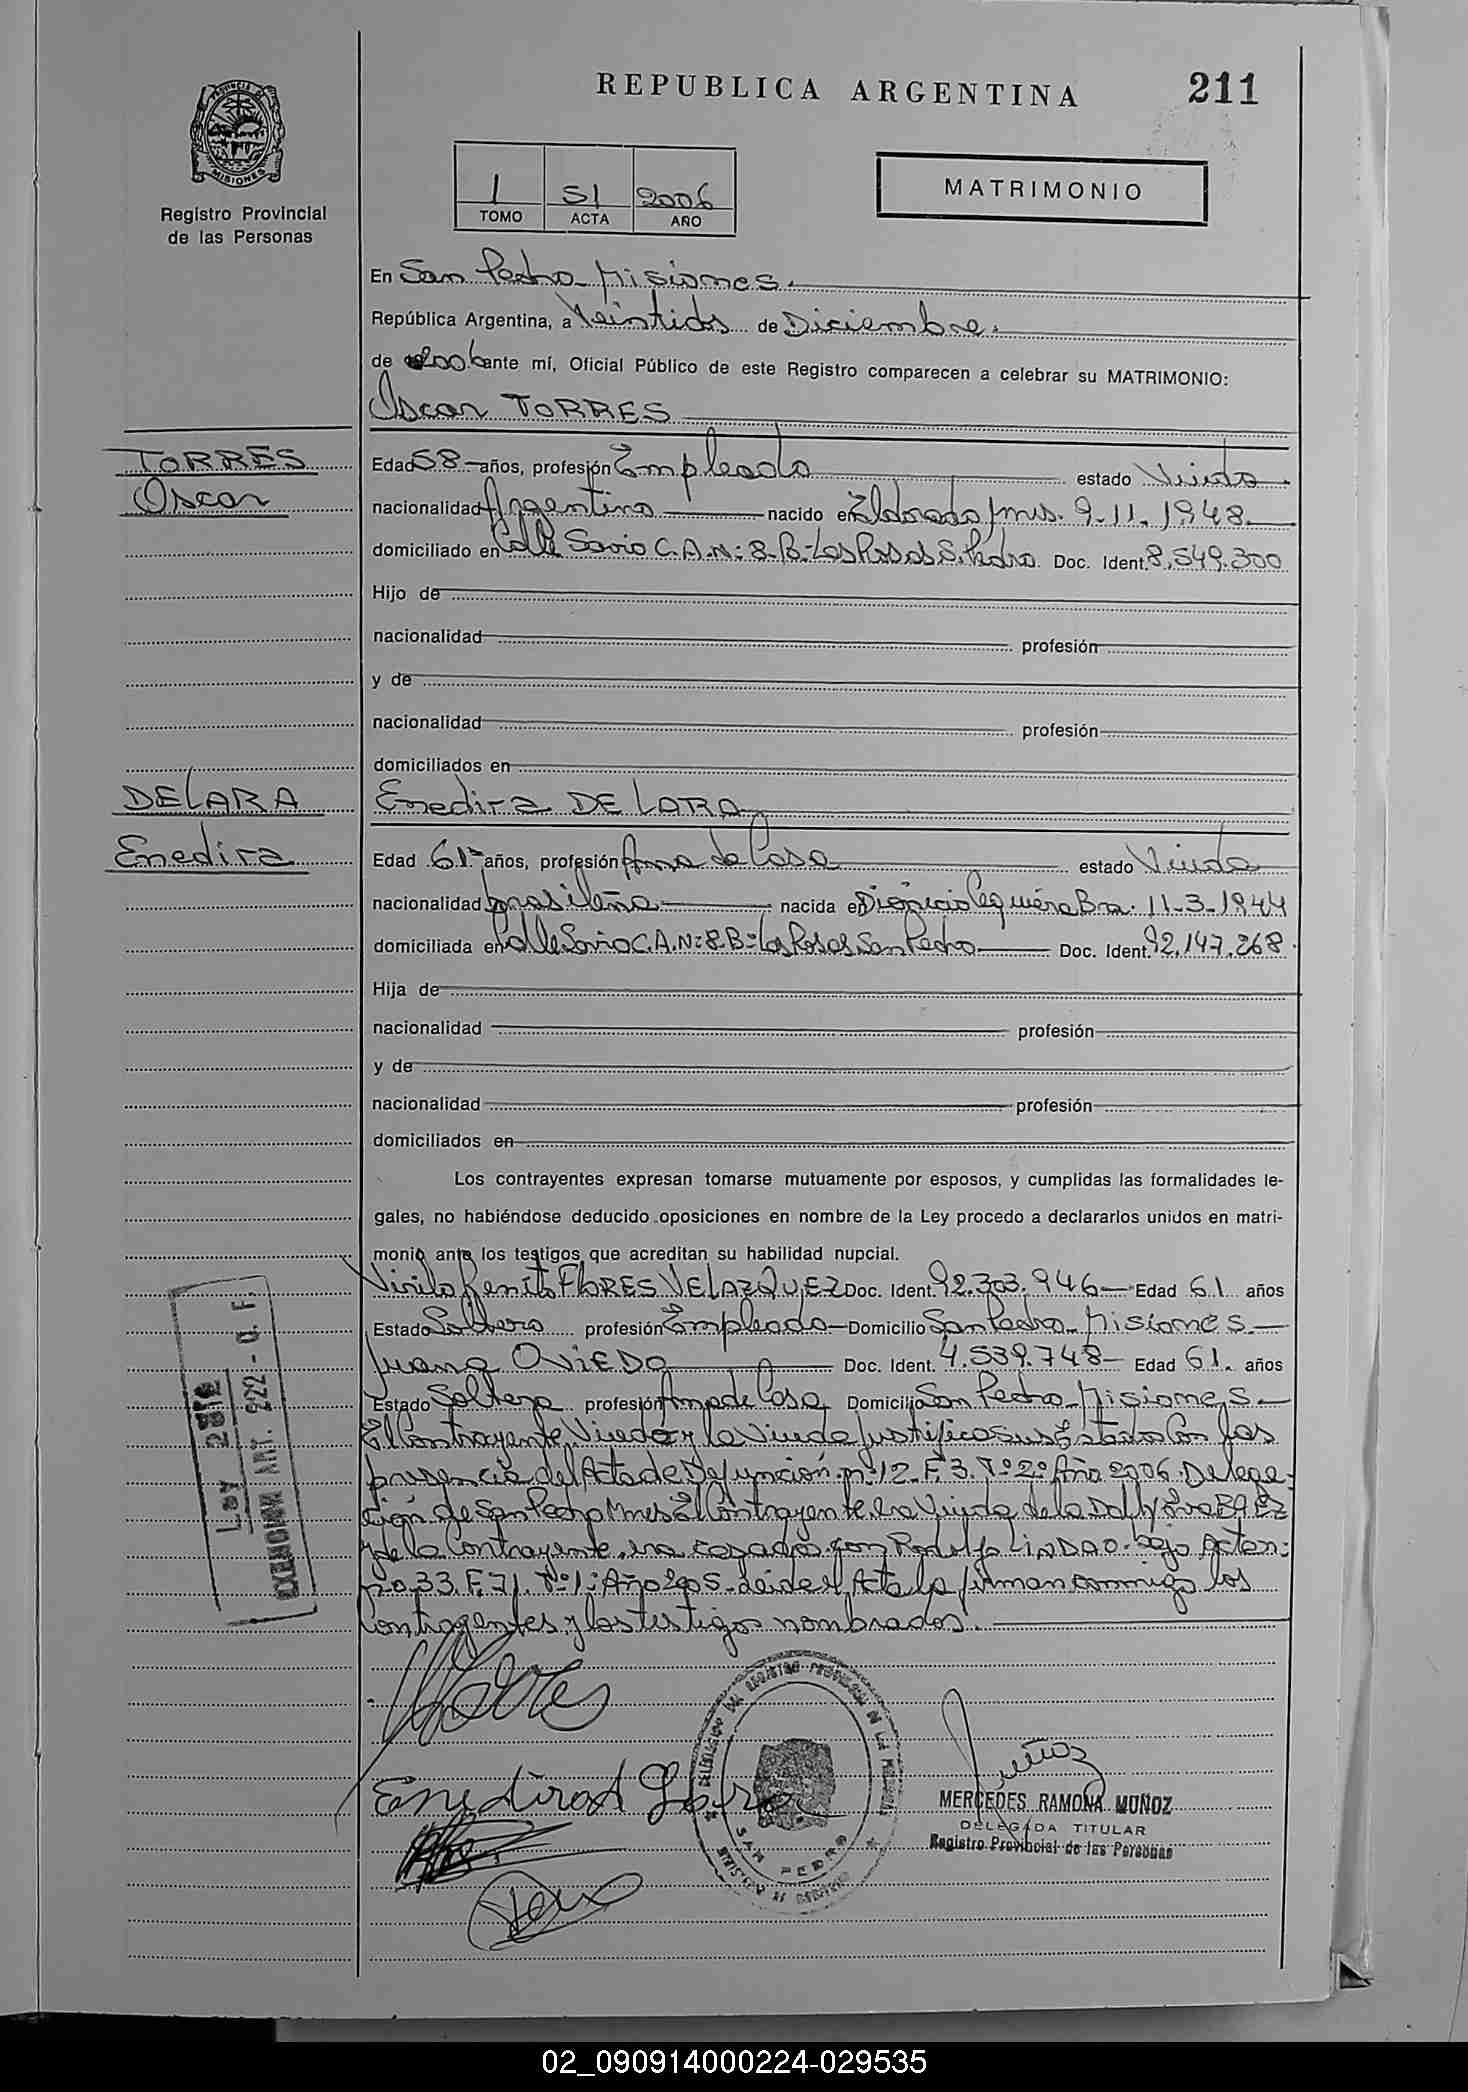 REPUBLICA ARGENTINA
211
PROVINCIA DE
MISIONES
Registro Provincial
de las Personas
1 51 2006
TOMO ACTA AÑO
MATRIMONIO
En San Pedro - Misiones.
República Argentina, a Veintidos de Diciembre.
de 2006 ante mí, Oficial Público de este Registro comparecen a celebrar su MATRIMONIO:
Oscar TORRES
TORRES
Oscar
Edad 58 - años, profesión Empleado estado Viudo
nacionalidad Argentino nacido en Eldorado Mnes. 9-11-1948
domiciliado en Calle Savio C.A.N: 8-B: Las Rosas S. Pedro. Doc. Ident. 8.549.300
Hijo de
nacionalidad profesión
y de
nacionalidad profesión
domiciliados en
DE LARA
Enedira
Enedira DE LARA
Edad 61 años, profesión Ama de Casa estado Viuda
nacionalidad brasileña nacida en Dionicio Cerquiera Bra. 11-3-1944
domiciliada en Calle Savio C.A.N: 8-B: Las Rosas San Pedro Doc. Ident. 92.147.268
Hija de
nacionalidad profesión
y de
nacionalidad profesión
domiciliados en
Los contrayentes expresan tomarse mutuamente por esposos, y cumplidas las formalidades le-
gales, no habiéndose deducido oposiciones en nombre de la Ley procedo a declararlos unidos en matri-
monio ante los testigos que acreditan su habilidad nupcial.
Benito FLORES VELAZQUEZ Doc. Ident. 92.303.946 - Edad 61 años
Estado Soltero profesión Empleado - Domicilio San Pedro - Misiones. -
Juana OVIEDO Doc. Ident. 4.539.748 - Edad 61. años
Estado Soltera profesión Ama de Casa Domicilio San Pedro - Misiones -
El Contrayente Viudo y la Viuda justifico sus Estados Con las
presencia del Acta de Defunción nº 12. F. 3. Tº 2º Año 2006. Delega-
ción de San Pedro Mnes El Contrayente era Viudo de la BAEZ
y de la Contrayente era casada con Rodolfo LINDAO. bajo Acta n:
nº 33. F. 71. Tº 1: Año 2005 - leida el Acta la firman conmigo los
Contrayentes y los testigos nombrados.
Ley 2812
EXENCION ART. 222 - O. F.
Enedira d Lara
SAN PEDRO
Muñoz
MERCEDES RAMONA MUÑOZ
DELEGADA TITULAR
Registro Provincial de las Personas
02_090914000224-029535